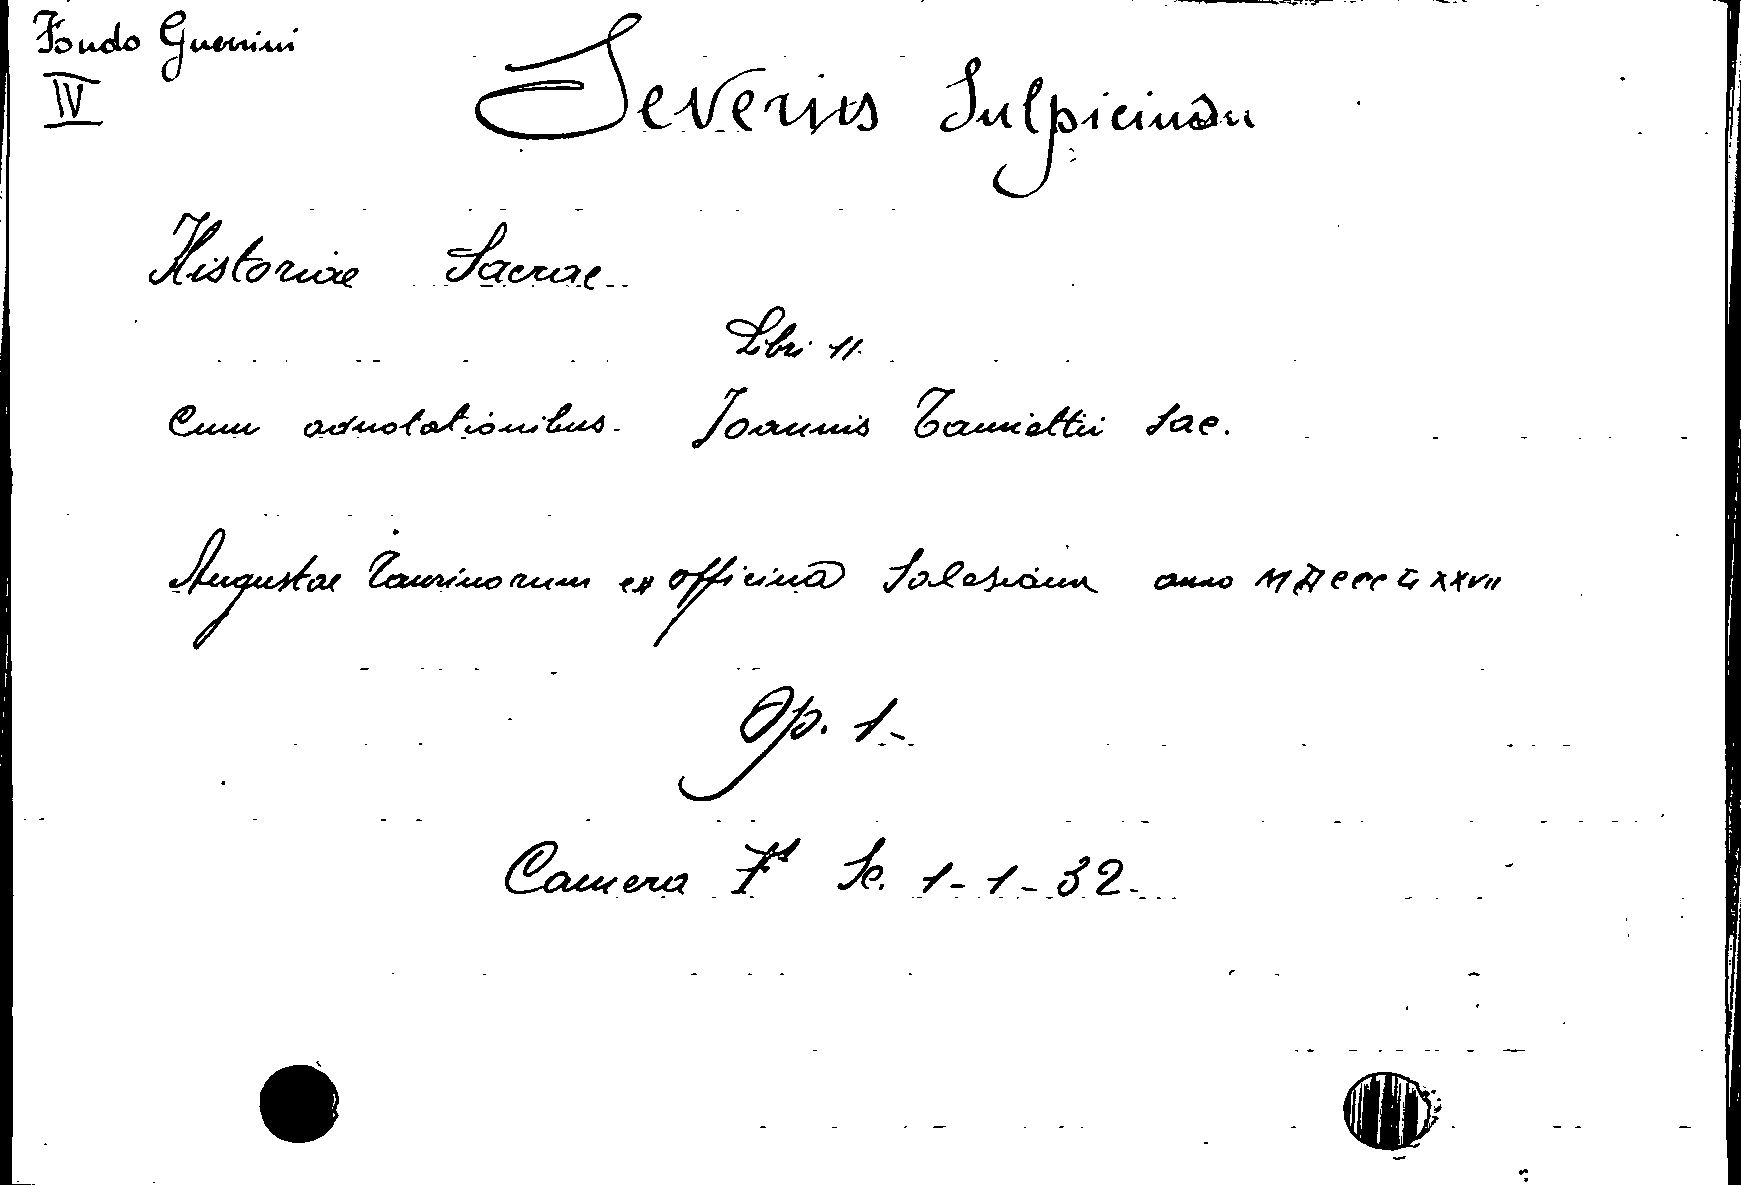 Fondo Guerrini
IV
Severus Sulpicius
Historiae Sacrae
Libri II.
Cum adnotationibus. Joannis Tamiettii Sac.
Augustae Taurinorum ex officina Salesiana anno MDCCCLXXVII
Op. 1-
Camera Fs Sc. 1-1-32-